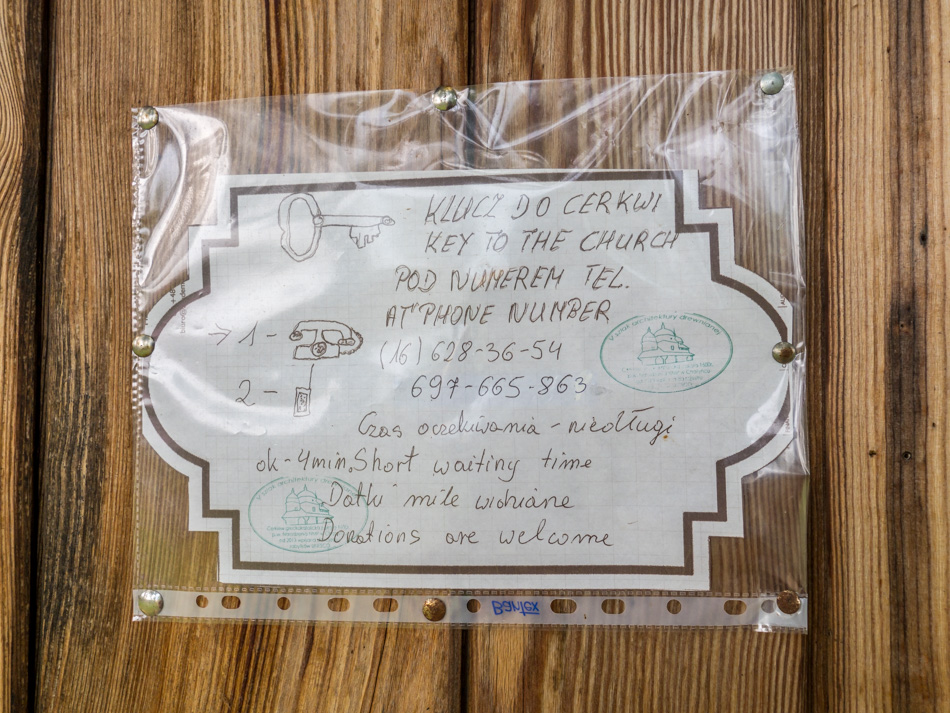 KLUCZ DO CERKWI
KEY TO THE CHURCH
POD NUMEREM TEL.
AT PHONE NUMBER
→ 1 - (16) 628-36-54
2 - 697-665-863
Czas oczekiwania - niedługi
ok - 4min. Short waiting time
Datki mile widziane
Donations are welcome
Szlak architektury drewnianej
Bantex